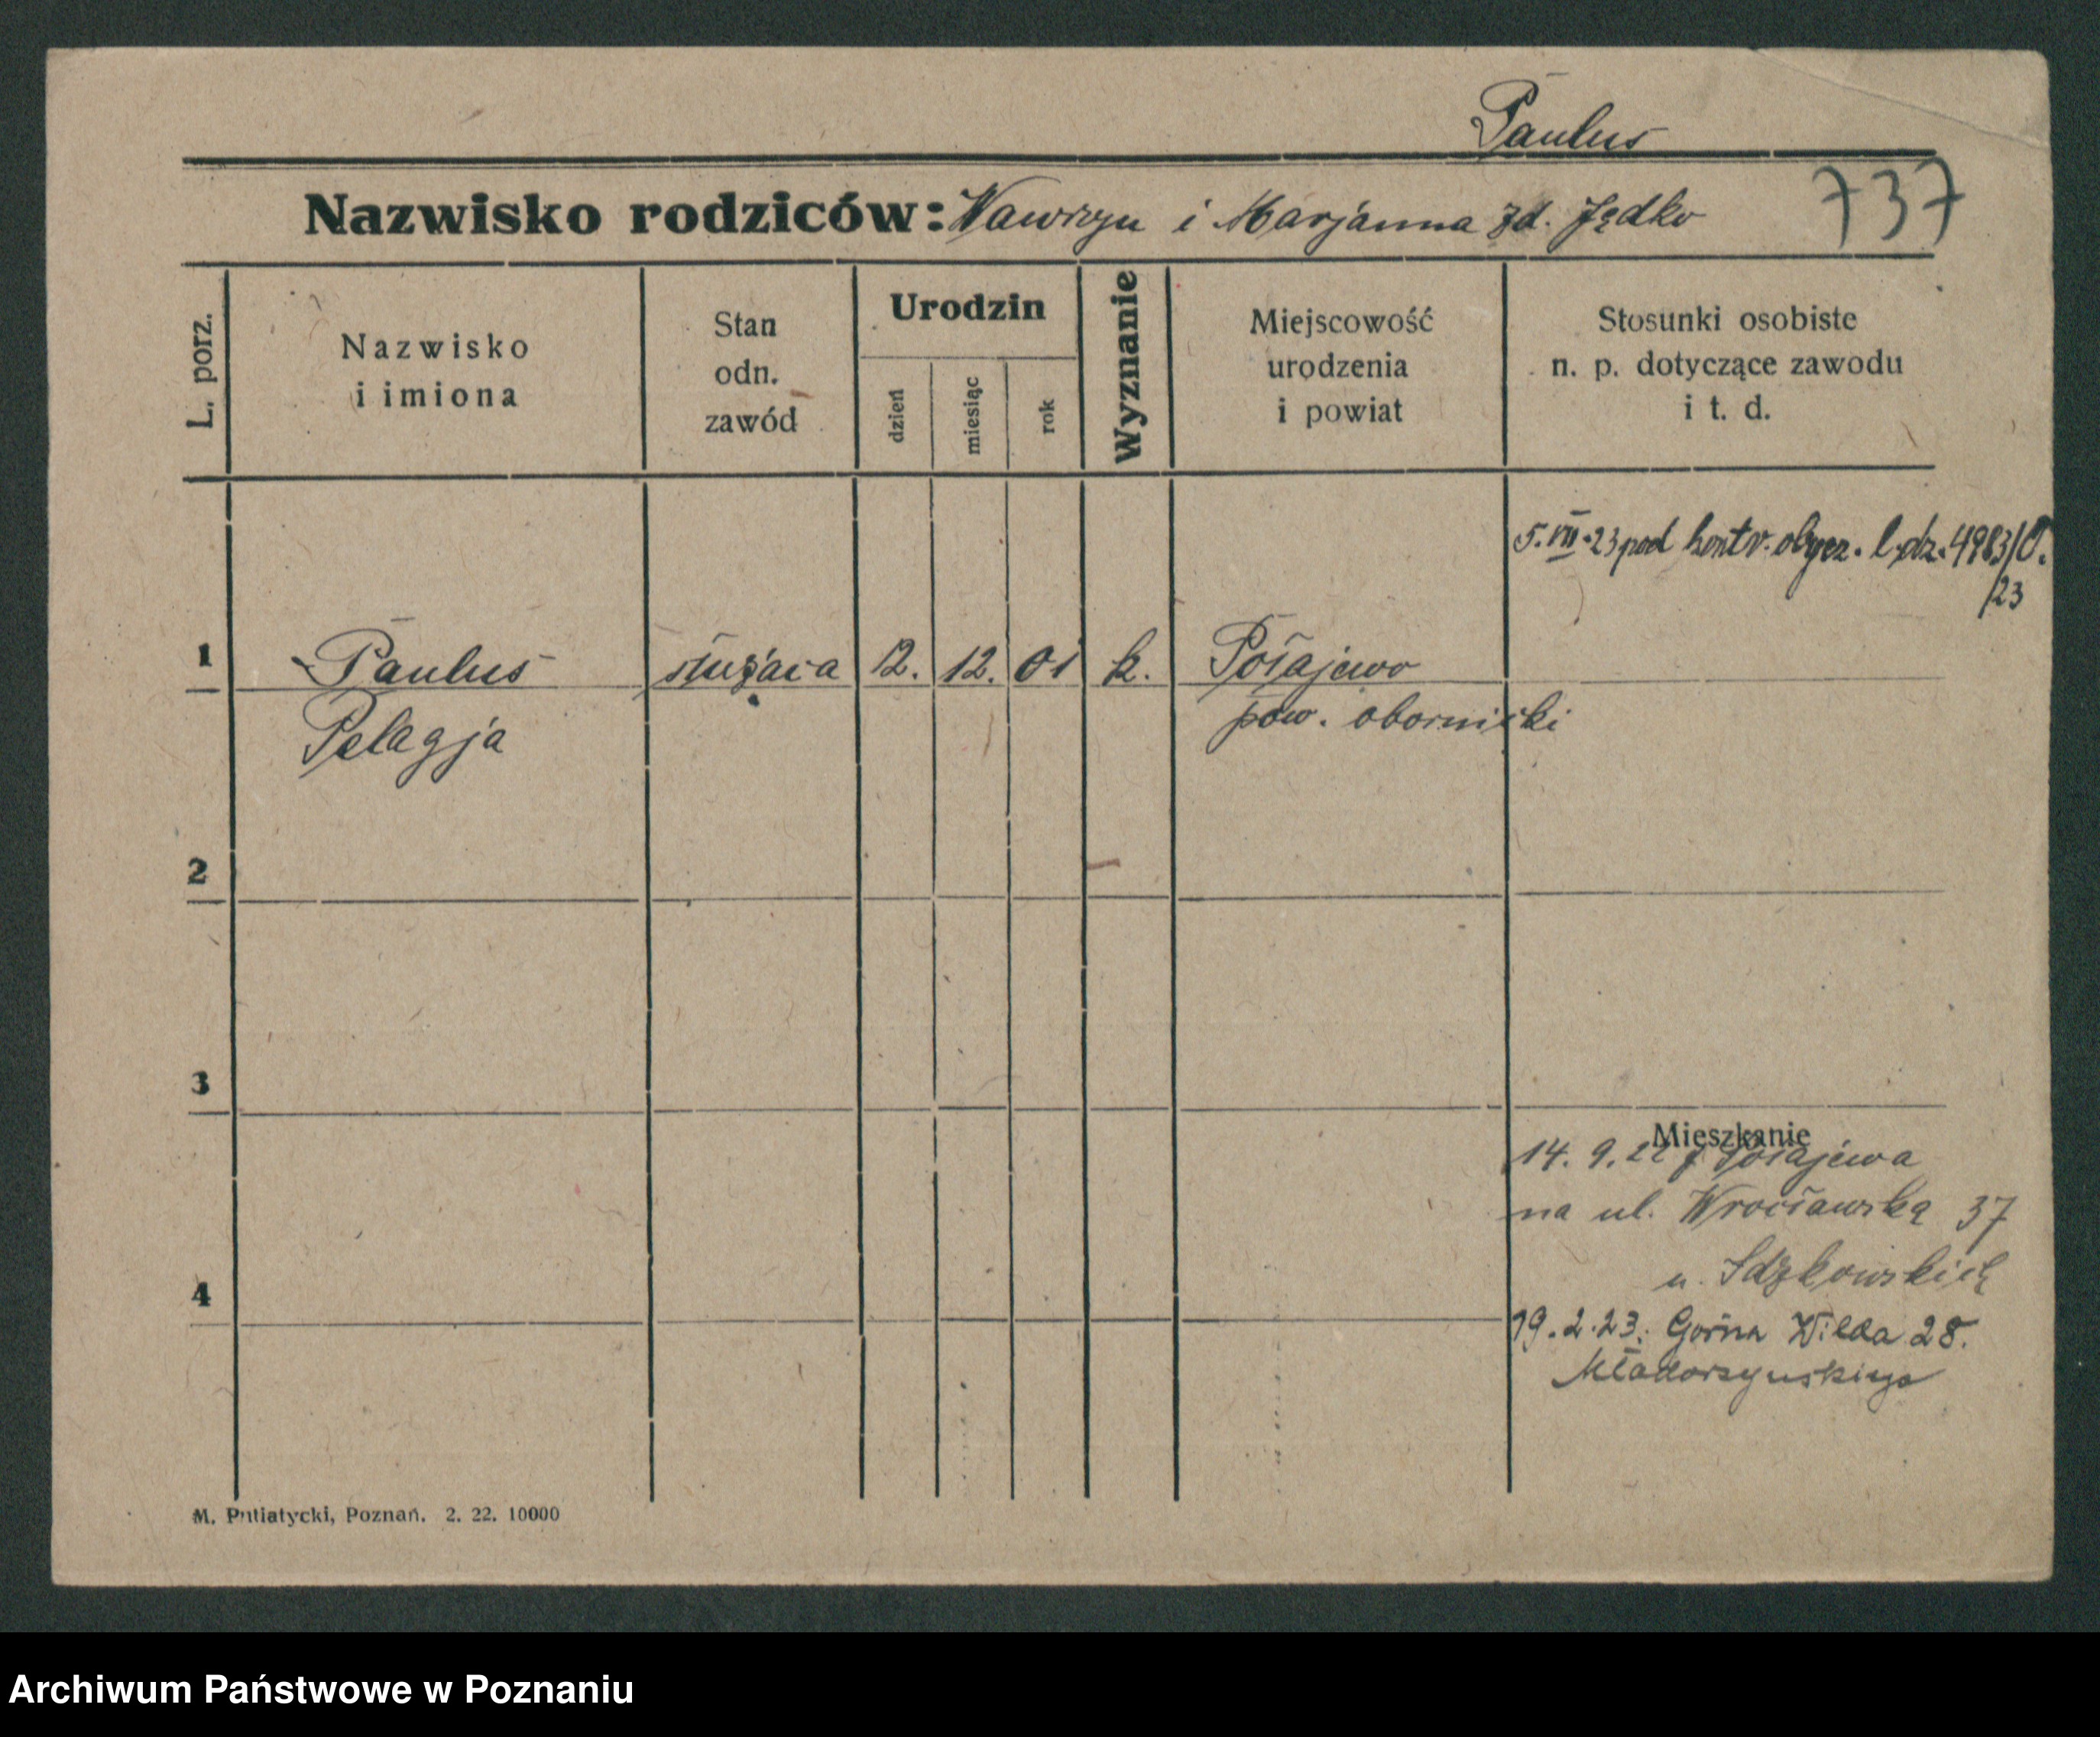 Paulus
737
Nazwisko rodziców: Wawrzyn i Marjanna zd. Jędko
L. porz.
Nazwisko
i imiona
Stan
odn.
zawód
Urodzin
dzień
miesiąc
rok
Wyznanie
Miejscowość
urodzenia
i powiat
Stosunki osobiste
n. p. dotyczące zawodu
i t. d.
5. VII. 23 pod kontr. obycz. l. dz. 4983/O.
/23
1
Paulus
służąca
12.
12.
01
k.
Połajewo
Pelagja
pow. obornicki
2
3
Mieszkanie
14. 9. 22 z Połajewa
na ul. Wrocławską 37
u. Idzkowskich
4
19. 2. 23. Górna Wilda 28.
M. Putiatycki, Poznań. 2. 22. 10000
Archiwum Państwowe w Poznaniu